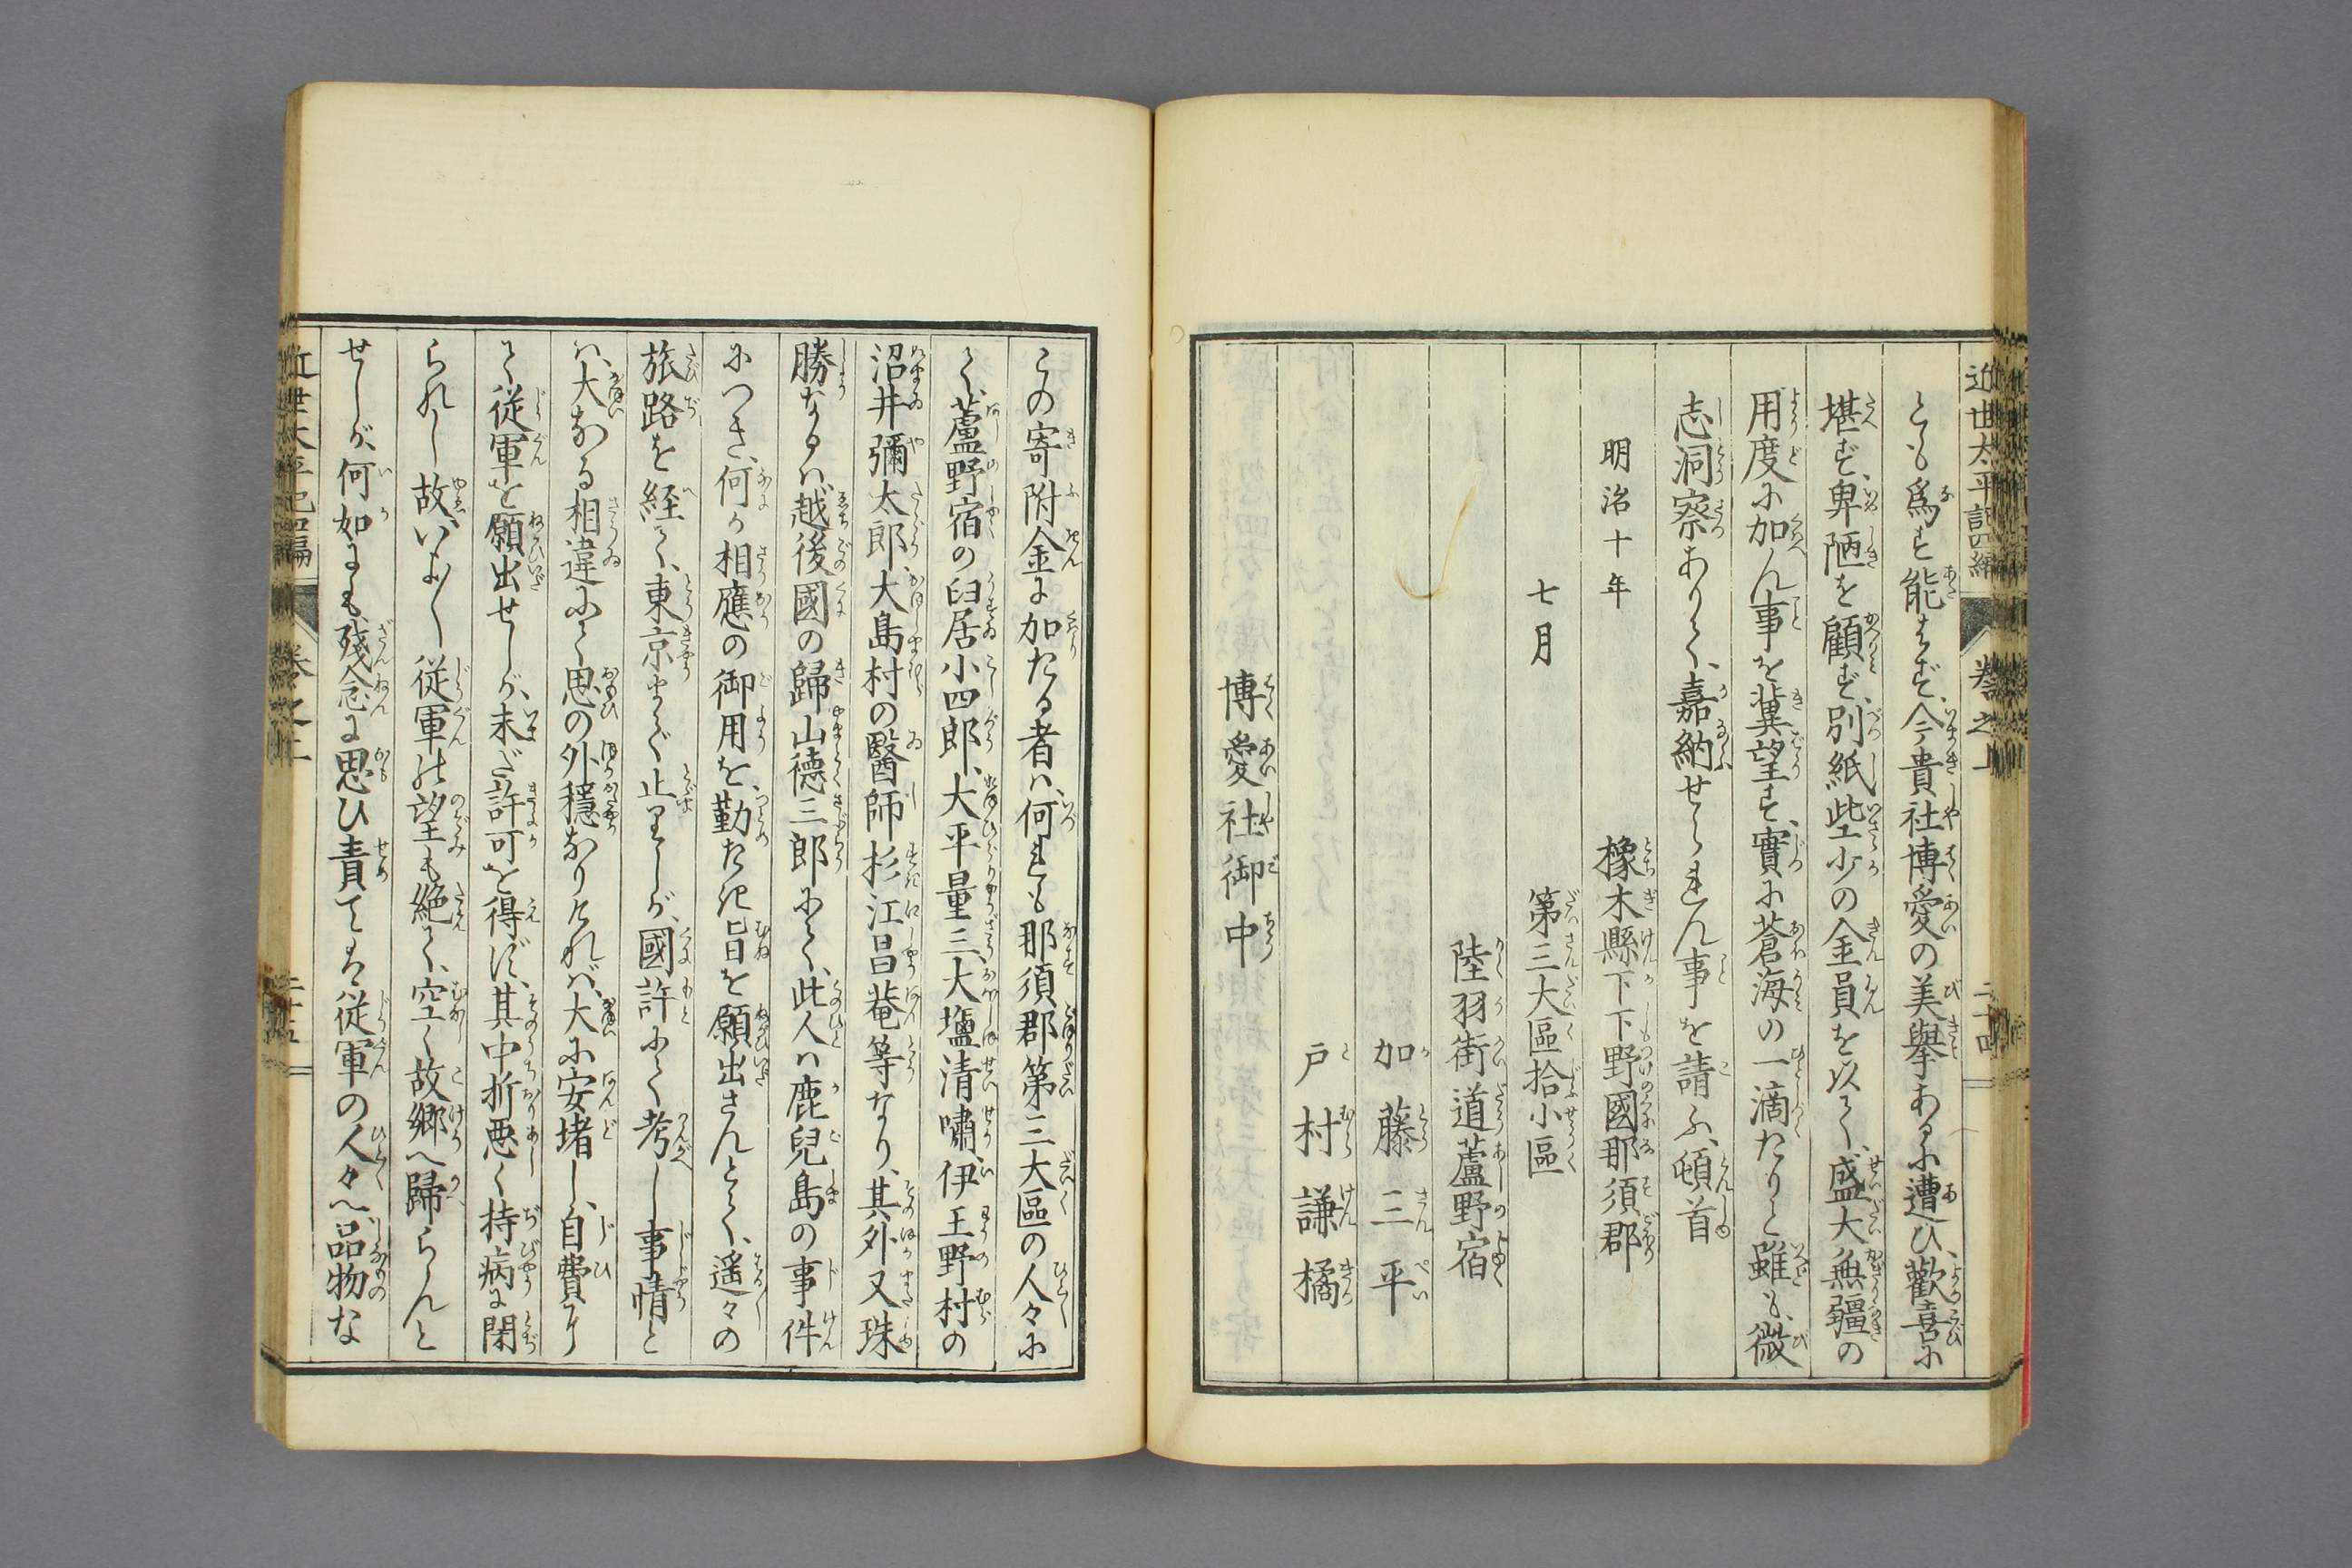 近世太平記四編 卷之上 二十四
とも爲す能はず、今貴社博愛の美擧あるに遭ひ、歡喜に
堪ず、卑陋を顧ず、別紙些少の金員を以て、盛大無疆の
用度に加ん事を冀望す、實に蒼海の一滴たりと雖も、微
志洞察ありて、嘉納せられん事を請ふ、頓首
明治十年
橡木縣下下野國那須郡
七月
第三大區拾小區
陸羽街道蘆野宿
加藤三平
戸村謙橘
博愛社御中
この寄附金に加たる者ハ、何れも那須郡第三大區の人々に
て、蘆野宿の臼居小四郎、大平量三、大鹽清嘯、伊王野村の
沼井彌太郎、大島村の醫師杉江昌菴等なり、其外又珠
勝なるハ越後國の歸山德三郎にて、此人ハ鹿兒島の事件
につき、何か相應の御用を、勤たき旨を願出さんとて、遥々の
旅路を経て、東京まで止りしが、國許にて考し事情と
ハ、大なる相違にて思の外穩なりけれバ、大に安堵し、自費に
て従軍を願出せしが、未だ許可を得ず、其中折悪く持病に閉
られし故、いよ〳〵従軍の望も絶て、空く故郷へ歸らんと
せしが、何如にも残念に思ひ責てハ従軍の人々へ品物な
近世太平記四編 卷之上 二十五